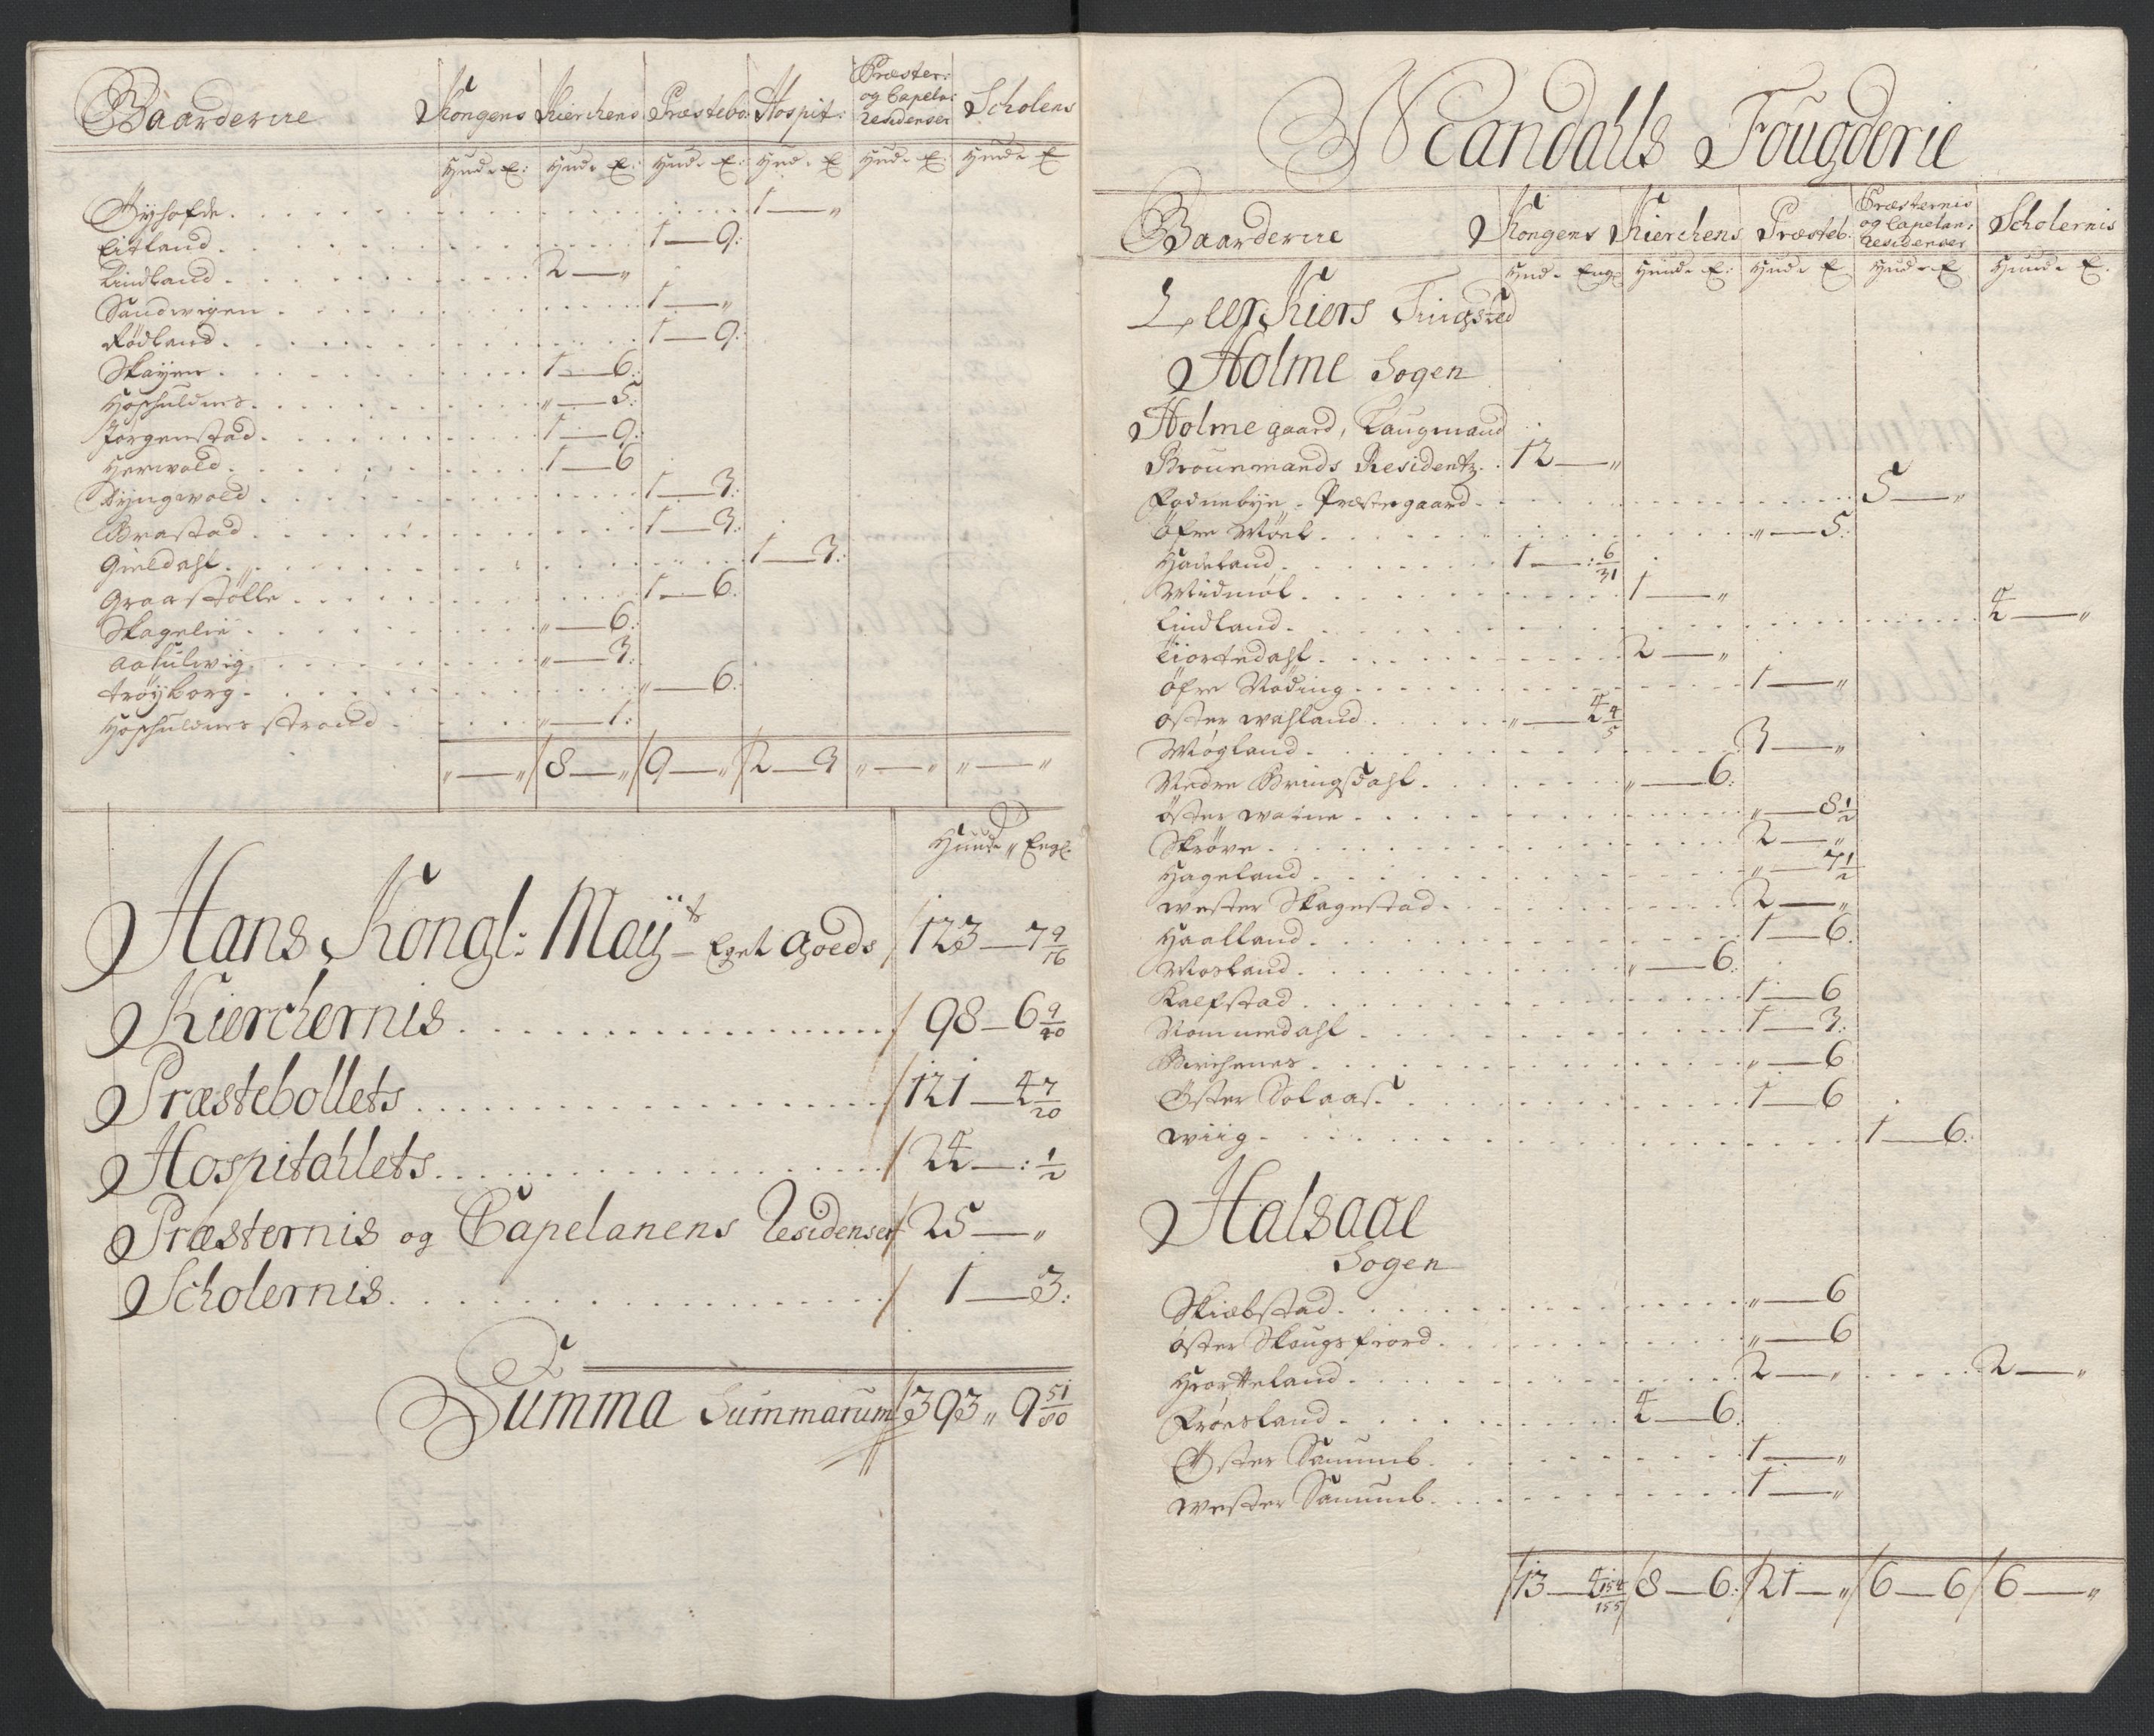 Gaarderne Kongens Kierchens Præstebo: Hospit: Præster: og Capela: Residenser Scholens
Hud: E: Hud: E: Hud: E: Hud: E Hud: E: Hud: E
Øÿhofde 1 — „
Eitland 1 — 9:
Lindland 2 — „
Sandwigen 1 — „
Rødland 1 — 9:
Skayen 1 — 6:
Høskuldnes „ — 5:
Jørgenstad 1 — 9:
Herwold 1 — 6
Tÿngwold 1 — 3:
Brastad 1 — 3:
Gieldahl 1 — 3:
Graastølle 1 — 6:
Skagelie „ — 6:
Aasulwig „ — 3:
Trøÿborg „ — 6:
Høskuldnes strand „ — 1:
„ — „ / 8 — „ / 9 — „ / 2 — 3 „ — „ „ — „
Hunde „ Engl:
Hans Kongl: Maÿts Eget Goeds / 123 — 7 9/16
Kierchernis / 98 — 6 9/40
Præstebollets / 121 — 4 7/20
Hospitahlets / 24 — : 1/2
Præsternis og Capelanens Residenser / 25 — „
Scholernis / 1 — 3:
Summa Summarum / 393 „ 9 51/80
Mandahls Fougderie
Gaarderne Kongens Kierchens Præsteb: Præsternis og Capelan: Residenser Scholernis
Hud: Engl: Hund: E: Hud: E Hud: E Hund: E:
Leer Kiers Tingsted
Holme Sogen
Holme gaard, Laugmand
Brounmands Residentz 12 — „
Fodnebÿe Præstegaard 5 — „
Øfre Møel „ — 5:
Hadeland 1 — : 6/31
Midmøl 1 — „
Lindland 4 — „
Eiortedahl 2 — „
Øfre Nøding 1 — „
Øster wahland „ — 4 4/5
Møgland 3 — „
Nedre Bringsdahl „ — 6:
Øster watne „ — 8 1/2
Skrøve 2 — „
Hageland „ — 7 1/2
wester Skagestad 2 — „
Haalland 1 — 6:
Mosland „ — 6:
Kalfstad 1 — 6
Nommedahl 1 — 3:
Birchenes „ — 6
Øster Solaas 1 — 6
wiig 1 — 6:
Halsaae
Sogen
Skiæbstad „ — 6
Øster Skougsfiord „ — 6
Hiortteland 2 — „ 2 — „
Frøesland 4 — 6:
Øster Sanumb 1 — „
wester Sanumb 1 — „
/ 13 — 4 154/155 / 8 — 6: / 21 — „ / 6 — 6 / 6 — „